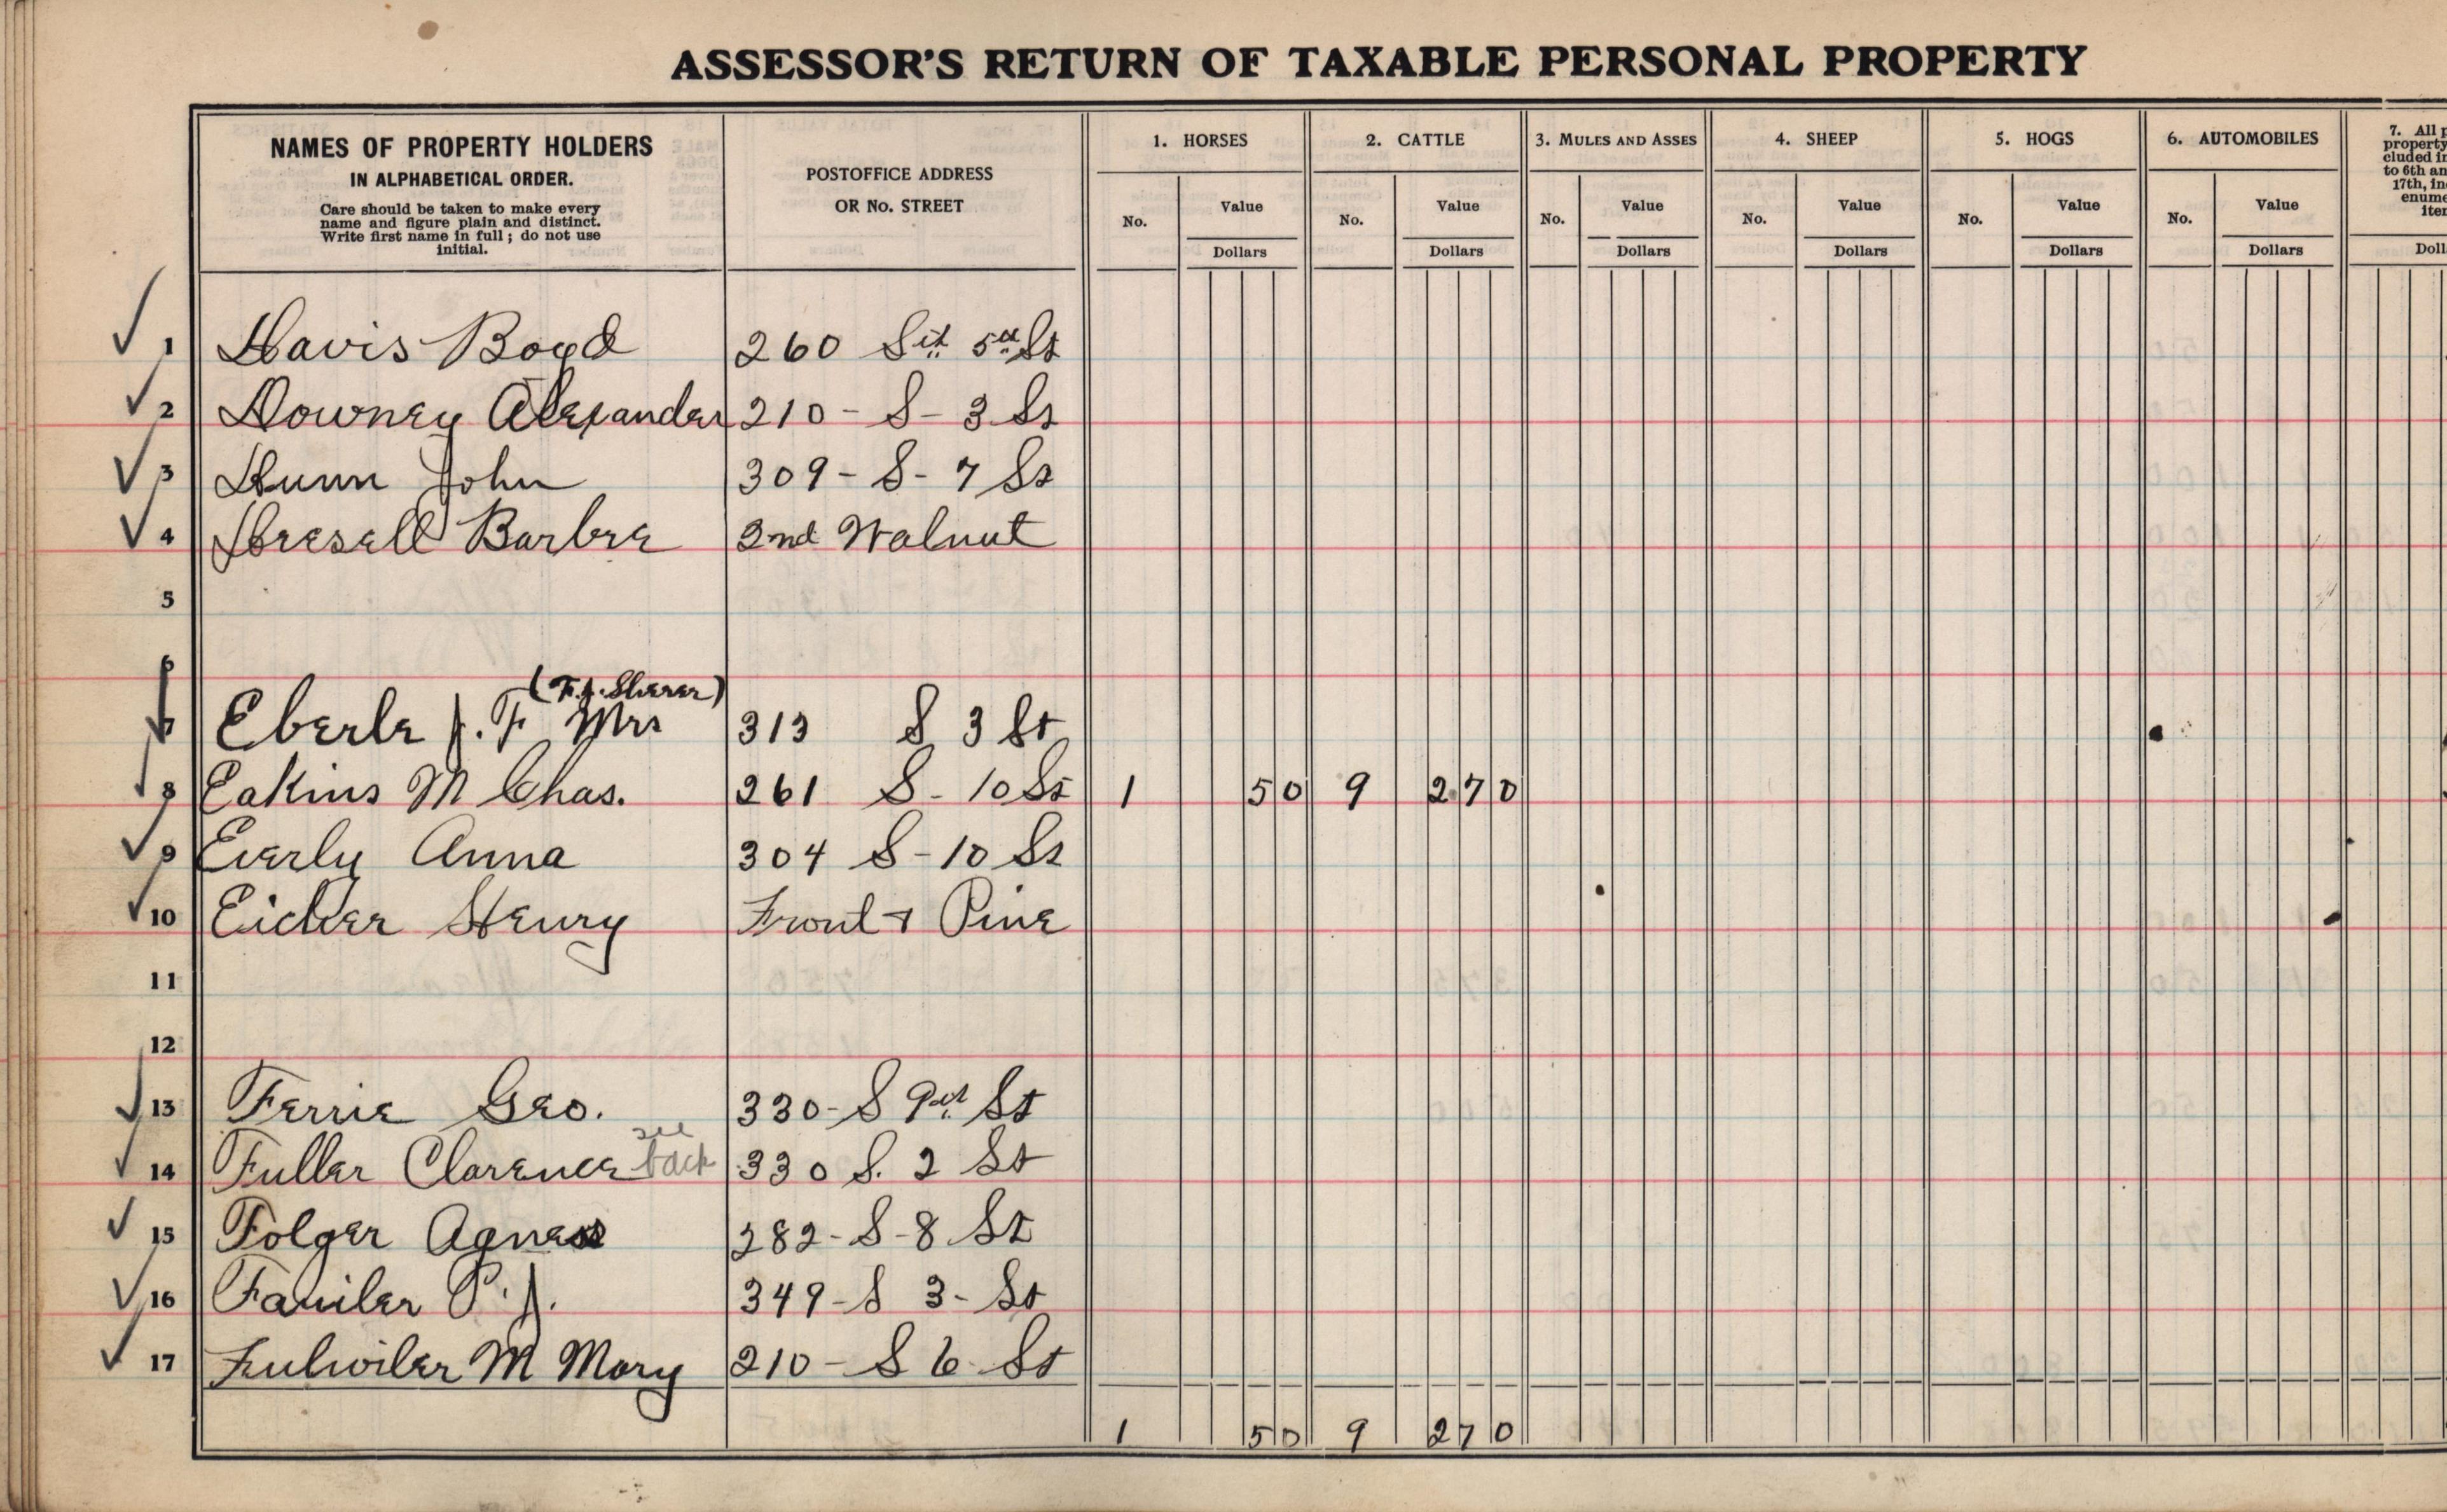 ASSESSOR'S RETURN OF TAXABLE PERSONAL PROPERTY
NAMES OF PROPERTY HOLDERS
IN ALPHABETICAL ORDER.
Care should be taken to make every
name and figure plain and distinct.
Write first name in full; do not use
initial.
POSTOFFICE ADDRESS
OR No. STREET
1. HORSES
No.
Value
Dollars
2. CATTLE
No.
Value
Dollars
3. MULES AND ASSES
No.
Value
Dollars
4. SHEEP
No.
Value
Dollars
5. HOGS
No.
Value
Dollars
6. AUTOMOBILES
No.
Value
Dollars
7. All p
property
cluded in
to 6th an
17th, in
enume
iter
Doll
1 Davis Boyd 260 St 5th St
2 Downey Alexander 210 - S - 3 St
3 Dunn John 309 - S - 7 St
4 Dresell Barbre 2nd Walnut
5
6
(F.J. Sherer)
7 Eberle J. F Mrs 313 S 3 St
8 Eakins M Chas. 261 S - 10 St 1 50 9 270
9 Everly Anna 304 S - 10 St
10 Eicher Henry Front + Pine
11
12
13 Ferrie Geo. 330 - S 9th St
see
14 Fuller Clarence back 330 S. 2 St
15 Folger Agness 282 - S - 8 St
16 Fawiler P. J. 349 - S 3 - St
17 Fulwiler M Mary 210 - S 6 St
1 50 9 270